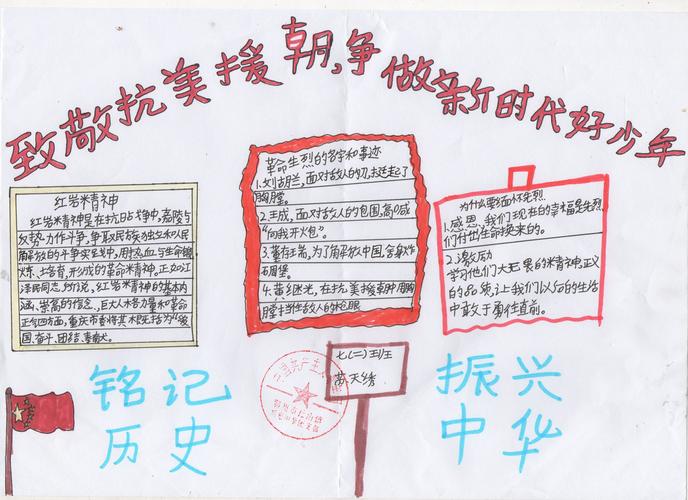 致敬抗美援朝,争做新时代好少年
红岩精神
红岩精神是在抗日战争中,嘉陵与
反势力作斗争,争取民族独立和人民
解放的斗争实践中,用热血与生命锻
炼、培育,形成的革命精神,正如江
泽民同志所说,红岩精神的基本内
涵、崇高的信念、巨大人格力量和革命
正气四方面,重庆市委将其概括为"爱
国、奋斗、团结、奉献。
革命先烈的名字和事迹
1.刘胡兰,面对敌人的刀,挺起了
胸膛。
2.王成,面对敌人的包围,高喊
"向我开炮"。
3.董存瑞,为了解放中国,舍身炸
石周堡。
4.黄继光,在抗美援朝时用胸
膛挡住敌人的枪眼
为什么要缅怀先烈
1.感恩、我们现在的幸福是先烈
们付出生命换来的。
2.激励
学习他们大无畏的精神,正义
的品质,让我们以后的生活
中敢于勇往直前。
七(二)班
苗天绣
铭记
历史
振兴
中华